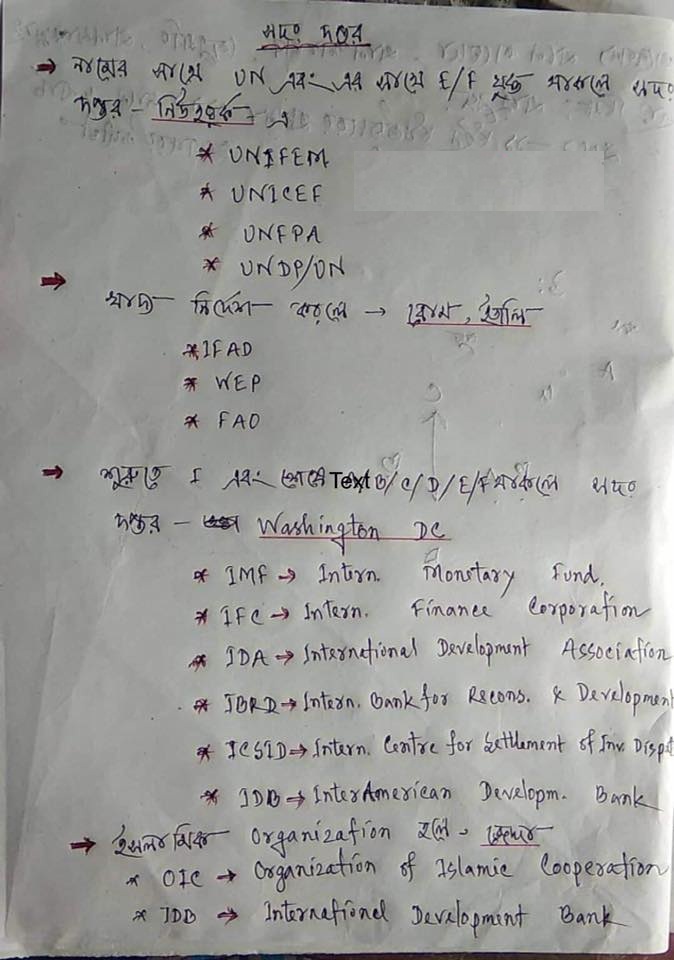 সদর দপ্তর
→ নামের সাথে UN এবং এর সাথে E/F যুক্ত থাকলে সদর
দপ্তর - নিউইয়র্ক - এ
* UNIFEM
* UNICEF
* UNFPA
* UNDP/UN
→
খাদ্য নির্দেশ করলে → রোম, ইতালি
* IFAD
* WEP
* FAO
→ শুরুতে I এবং শেষে Text B/C/D/E/F থাকলে সদর
দপ্তর - Washington DC
* IMF → Intern. Monetary Fund.
* IFC → Intern. Finance Corporation
* IDA → International Development Association
* IBRD → Intern. Bank for Recons. & Development
* ICSID → Intern. Centre for Settlement of Inv. Disput
* IDB → InterAmerican Developm. Bank
→ ইসলামিক Organization হলে - জেদ্দা
* OIC → Organization of Islamic Cooperation
* IDB → International Development Bank